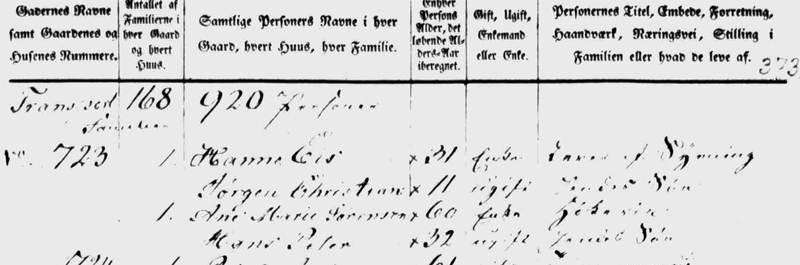 Gadernes Navne samt Gaardenes og Husenes Nummere.
Antallet af Familierne i hver Gaard og hvert Huus.
Samtlige Personers Navne i hver Gaard, hvert Huus, hver Familie.
Enhver Persons Alder, det løbende Alders-Aar iberegnet.
Gift, Ugift, Enkemand eller Enke.
Personernes Titel, Embede, Forretning, Haandværk, Næringsvei, Stilling i Familien eller hvad de leve af.
373
168 920 Personer
Familier
No. 723 1. Hanne Eis x 31 Enke lever af Syening
Jørgen Christian x 11 ugift hendes Søn
1. Ane Marie Sørensen x 60 Enke Høkerin
Hans Peter x 32 ugift hendes Søn
724 1. 61